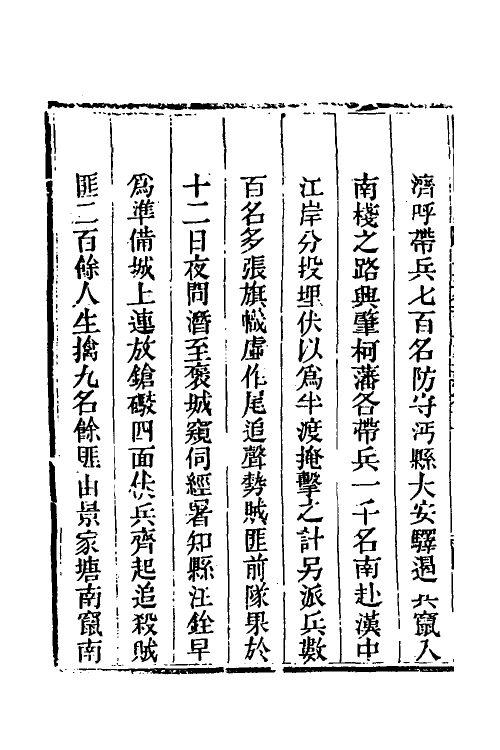 濟呼帶兵七百名防守沔縣大安驛遏其竄入
南棧之路興肇柯藩各帶兵一千名南赴漢中
江岸分投埋伏以爲半渡掩擊之計另派兵數
百名多張旗幟虛作尾追聲勢賊匪前隊果於
十二日夜間潛至褒城窺伺經署知縣汪銓早
爲準備城上連放鎗礮四面伏兵齊起追殺賊
匪二百餘人生擒九名餘匪由景家塘南竄南